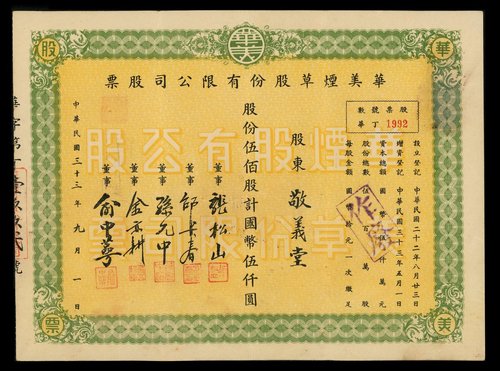 華美煙草股份有限公司股票
股票號數
華丁 1992
設立登記 中華民國二十二年八月廿三日
增資登記 中華民國三十三年五月一日
資本總額 國幣伍仟萬元
股份總數 伍百萬股
每股金額 國幣拾元一次繳足
作廢
股東 敬義堂
股份伍佰股計國幣伍仟圓
董事 張松山
董事
董事 孫允中
董事
董事
中華民國三十三年九月一日
華
美
股
票